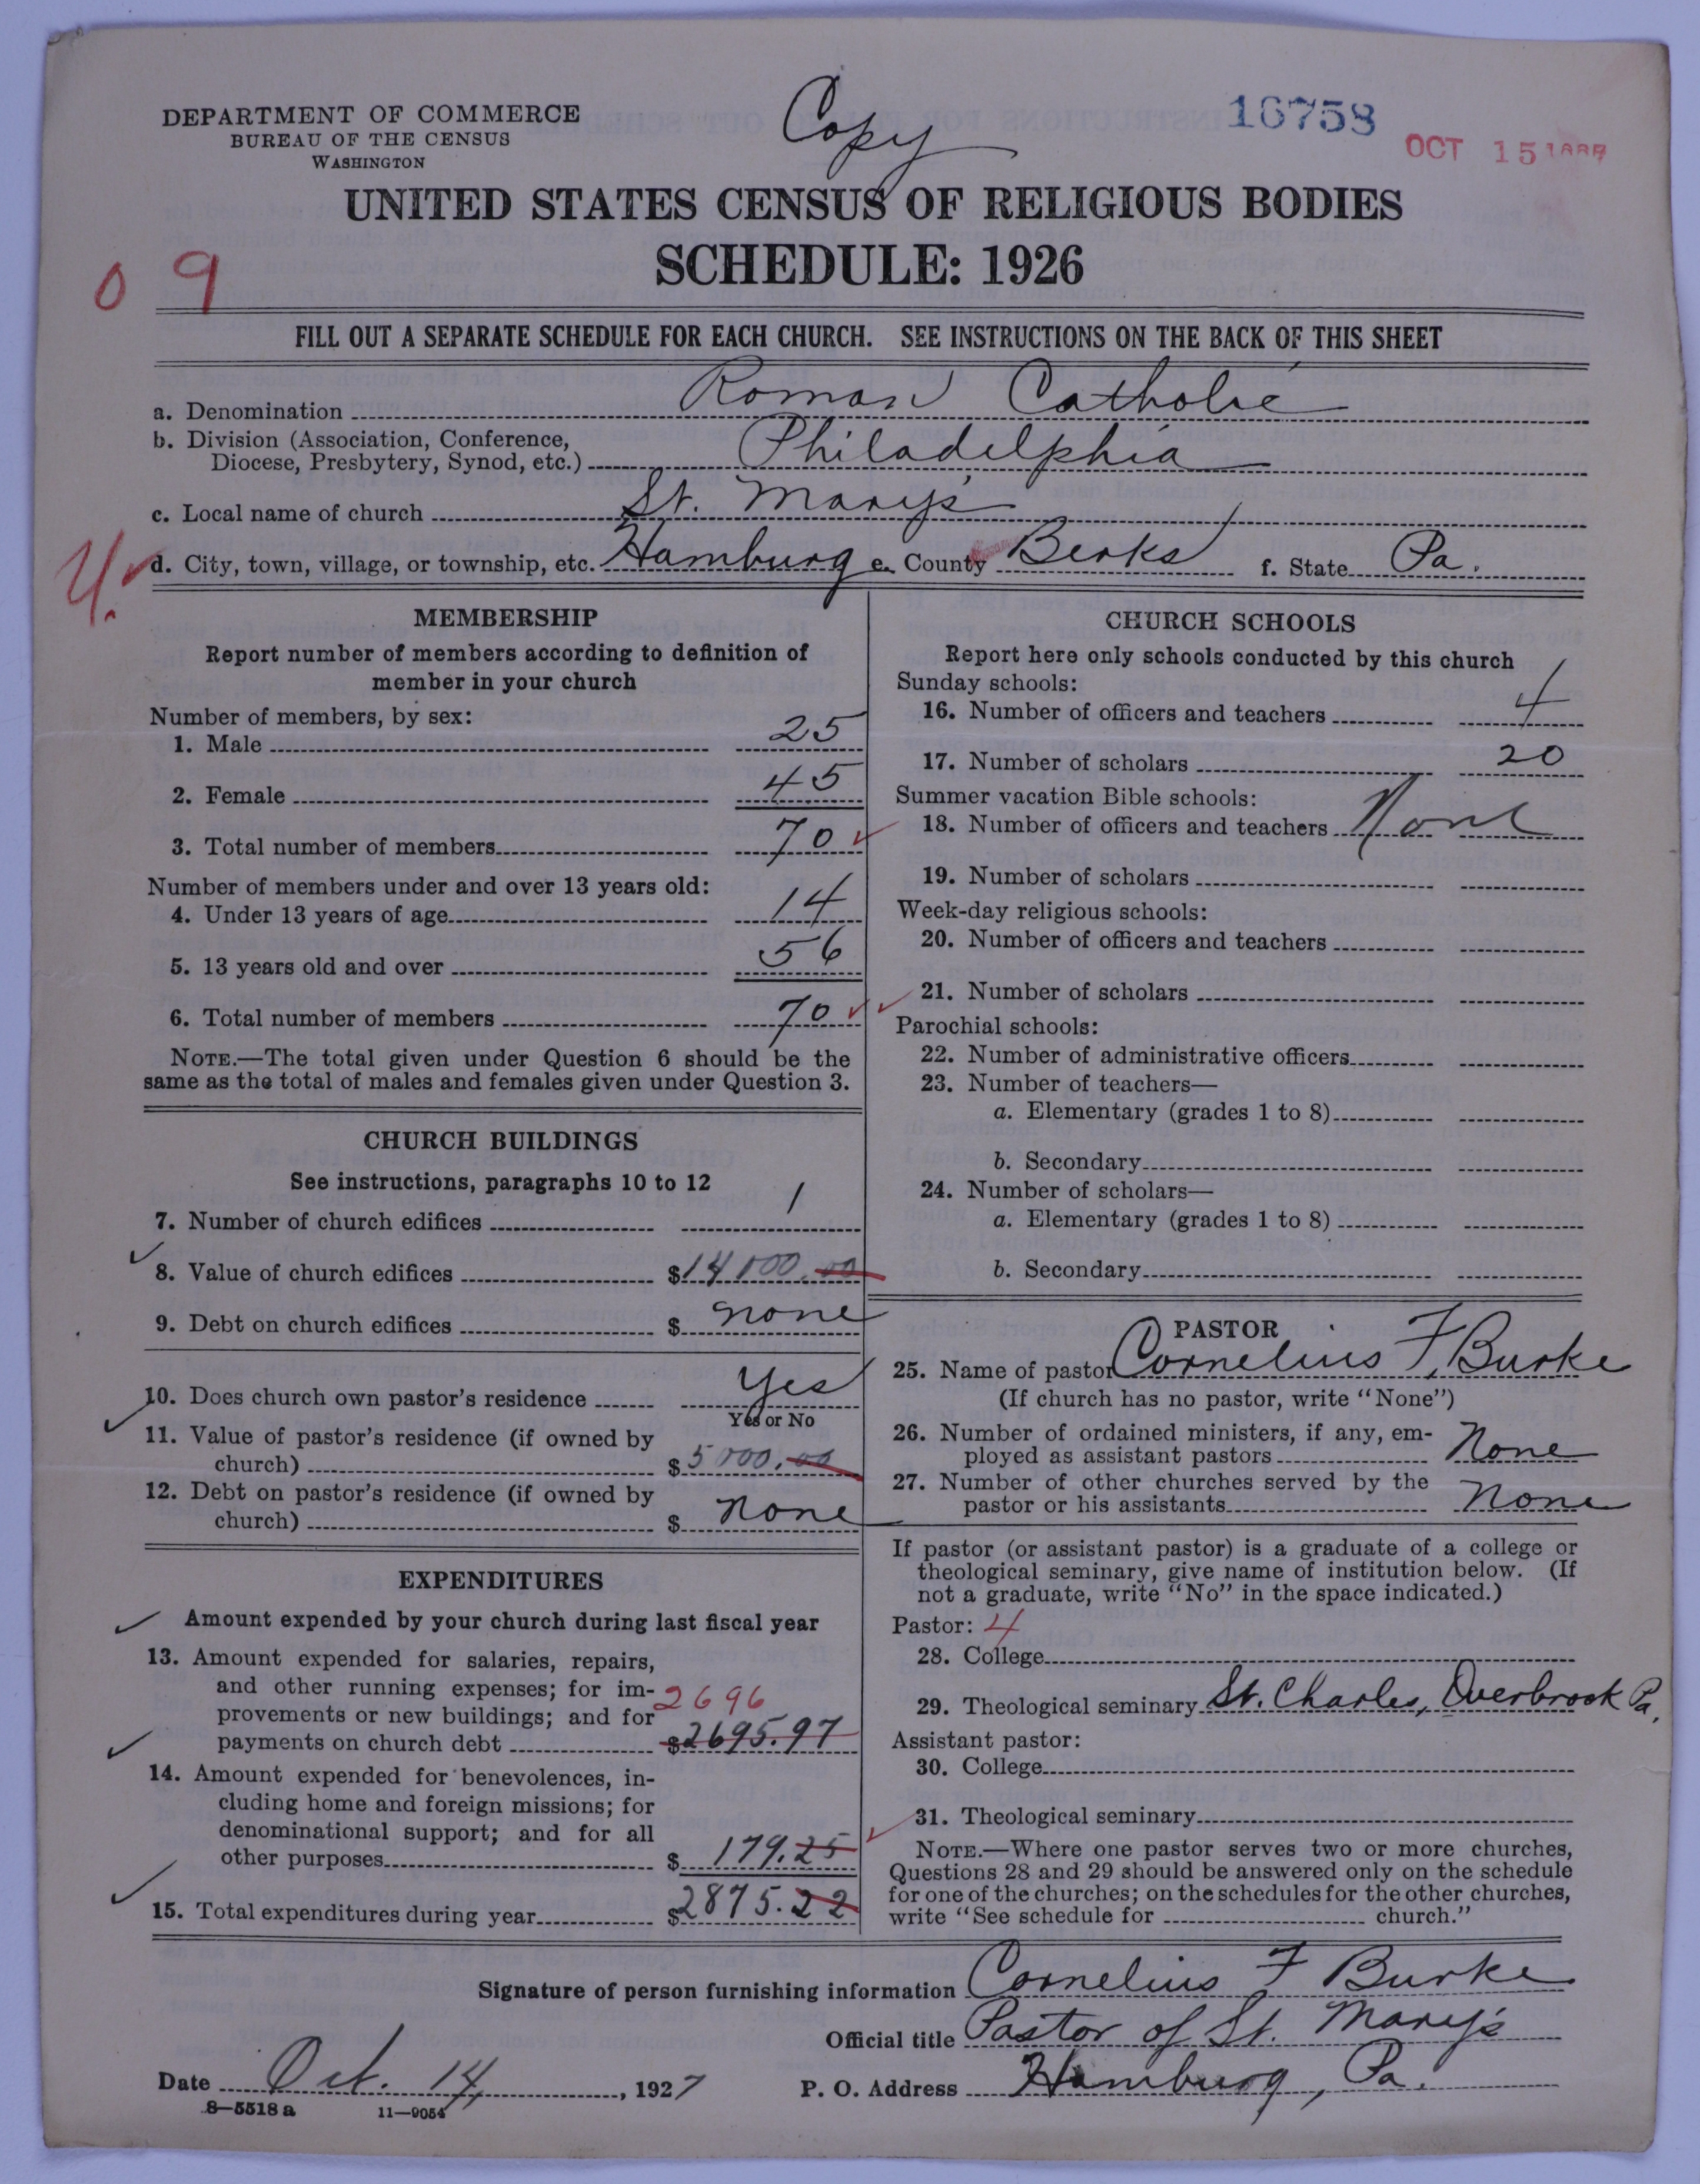 DEPARTMENT OF COMMERCE
BUREAU OF THE CENSUS
WASHINGTON
Copy
16758
OCT 15
UNITED STATES CENSUS OF RELIGIOUS BODIES
SCHEDULE: 1926
0 9
FILL OUT A SEPARATE SCHEDULE FOR EACH CHURCH. SEE INSTRUCTIONS ON THE BACK OF THIS SHEET
a. Denomination Roman Catholic
b. Division (Association, Conference,
Diocese, Presbytery, Synod, etc.) Philadelphia
c. Local name of church St. Mary's
d. City, town, village, or township, etc. Hamburg e. County Berks f. State Pa.
MEMBERSHIP
Report number of members according to definition of
member in your church
Number of members, by sex:
1. Male 25
2. Female 45
3. Total number of members 70
Number of members under and over 13 years old:
4. Under 13 years of age 14
5. 13 years old and over 56
6. Total number of members 70
NOTE.—The total given under Question 6 should be the
same as the total of males and females given under Question 3.
CHURCH BUILDINGS
See instructions, paragraphs 10 to 12
7. Number of church edifices 1
8. Value of church edifices $14000.00
9. Debt on church edifices $ none
10. Does church own pastor's residence Yes
Yes or No
11. Value of pastor's residence (if owned by
church) $5000.00
12. Debt on pastor's residence (if owned by
church) $ none
EXPENDITURES
Amount expended by your church during last fiscal year
13. Amount expended for salaries, repairs,
and other running expenses; for im-
2696
provements or new buildings; and for
payments on church debt $2695.97
14. Amount expended for benevolences, in-
cluding home and foreign missions; for
denominational support; and for all
other purposes $ 179.25
15. Total expenditures during year $2875.22
CHURCH SCHOOLS
Report here only schools conducted by this church
Sunday schools:
16. Number of officers and teachers 4
17. Number of scholars 20
Summer vacation Bible schools:
18. Number of officers and teachers None
19. Number of scholars
Week-day religious schools:
20. Number of officers and teachers
21. Number of scholars
Parochial schools:
22. Number of administrative officers
23. Number of teachers—
a. Elementary (grades 1 to 8)
b. Secondary
24. Number of scholars—
a. Elementary (grades 1 to 8)
b. Secondary
PASTOR
25. Name of pastor Cornelius F. Burke
(If church has no pastor, write "None")
26. Number of ordained ministers, if any, em-
ployed as assistant pastors None
27. Number of other churches served by the
pastor or his assistants None
If pastor (or assistant pastor) is a graduate of a college or
theological seminary, give name of institution below. (If
not a graduate, write "No" in the space indicated.)
Pastor: 4
28. College
29. Theological seminary St. Charles, Overbrook Pa.
Assistant pastor:
30. College
31. Theological seminary
NOTE.—Where one pastor serves two or more churches,
Questions 28 and 29 should be answered only on the schedule
for one of the churches; on the schedules for the other churches,
write "See schedule for church."
Signature of person furnishing information Cornelius F Burke
Official title Pastor of St. Mary's
Date Oct. 14, 1927 P. O. Address Hamburg, Pa.
8—5518 a 11—9054